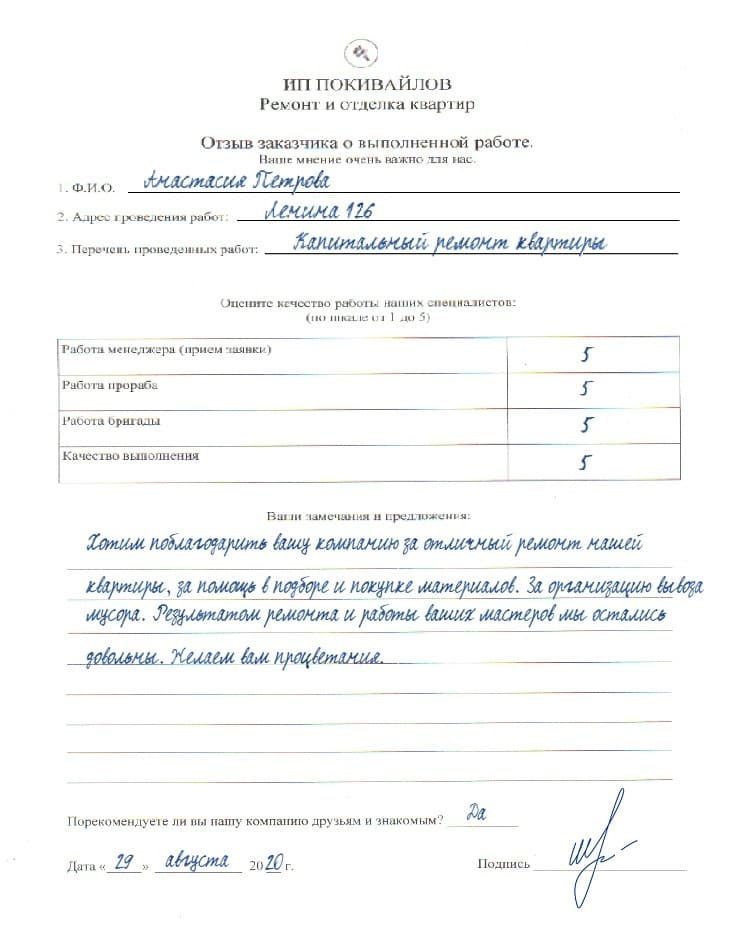 ИП ПОКИВАЙЛОВ
Ремонт и отделка квартир
Отзыв заказчика о выполненной работе.
Ваше мнение очень важно для нас.
1. Ф.И.О. Анастасия Петрова
2. Адрес проведения работ: Ленина 126
3. Перечень проведенных работ: Капитальный ремонт квартиры
Оцените качество работы наших специалистов:
(по шкале от 1 до 5)
Работа менеджера (прием заявки) 5
Работа прораба 5
Работа бригады 5
Качество выполнения 5
Ваши замечания и предложения:
Хотим поблагодарить вашу компанию за отличный ремонт нашей
квартиры, за помощь в подборе и покупке материалов. За организацию вывоза
мусора. Результатом ремонта и работы ваших мастеров мы остались
довольны. Желаем вам процветания.
Порекомендуете ли вы нашу компанию друзьям и знакомым? Да
Дата «29» августа 2020 г. Подпись